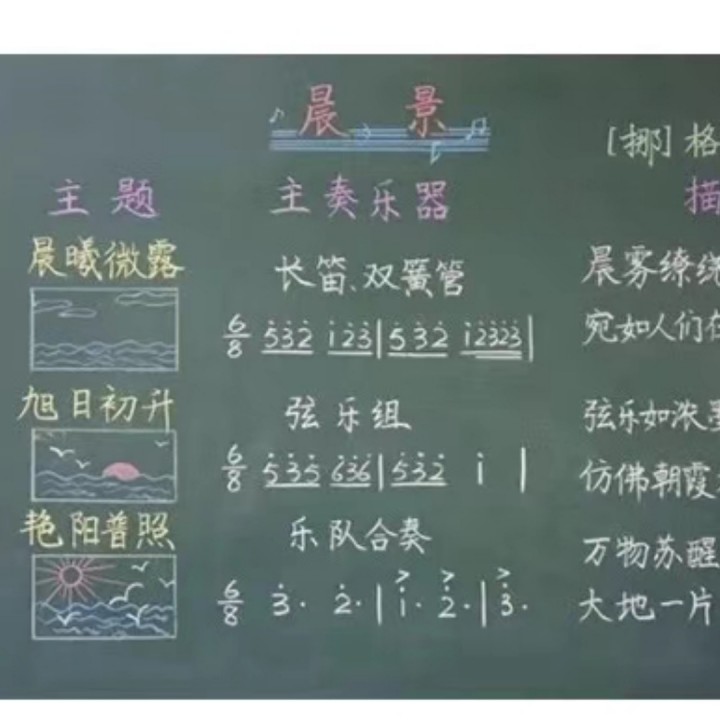 晨 景
[挪] 格
主 题 主奏乐器 描
晨曦微露 长笛、双簧管 晨雾缭绕
6/8 5̇3̇2̇ 1̇2̇3̇ | 5̇3̇2̇ 1̇2̇3̇2̇3̇ | 宛如人们在
旭日初升 弦乐组 弦乐如浓墨
6/8 5̇3̇5̇ 6̇3̇6̇ | 5̇3̇2̇ 1̇ | 仿佛朝霞
艳阳普照 乐队合奏 万物苏醒
6/8 3̇· 2̇· | 1̇· 2̇· | 3̇· 大地一片